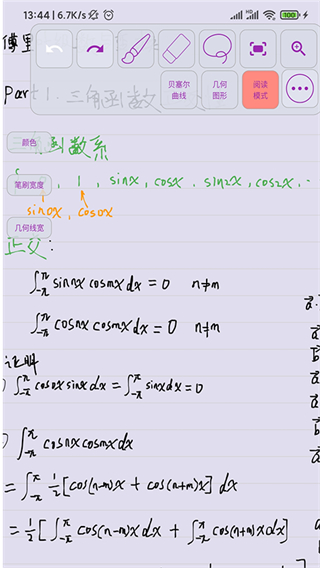 13:44 | 6.7K/s
傅里
贝塞尔曲线 几何图形 阅读模式
Part1. 三角函数
颜色 函数系
笔刷宽度 , 1, sinx, cosx, sin2x, cos2x, ..
sin0x, cos0x
几何线宽
正交:
∫_{-π}^{π} sin nx cos mx dx = 0 n≠m
∫_{-π}^{π} cos nx cos mx dx = 0 n≠m
证明
) ∫_{-π}^{π} cos0x sinx dx = ∫_{-π}^{π} sinx dx = 0
) ∫_{-π}^{π} cos nx cos mx dx
= ∫_{-π}^{π} 1/2 [cos(n-m)x + cos(n+m)x] dx
= 1/2 [∫_{-π}^{π} cos(n-m)x dx + ∫_{-π}^{π} cos(n+m)x dx]